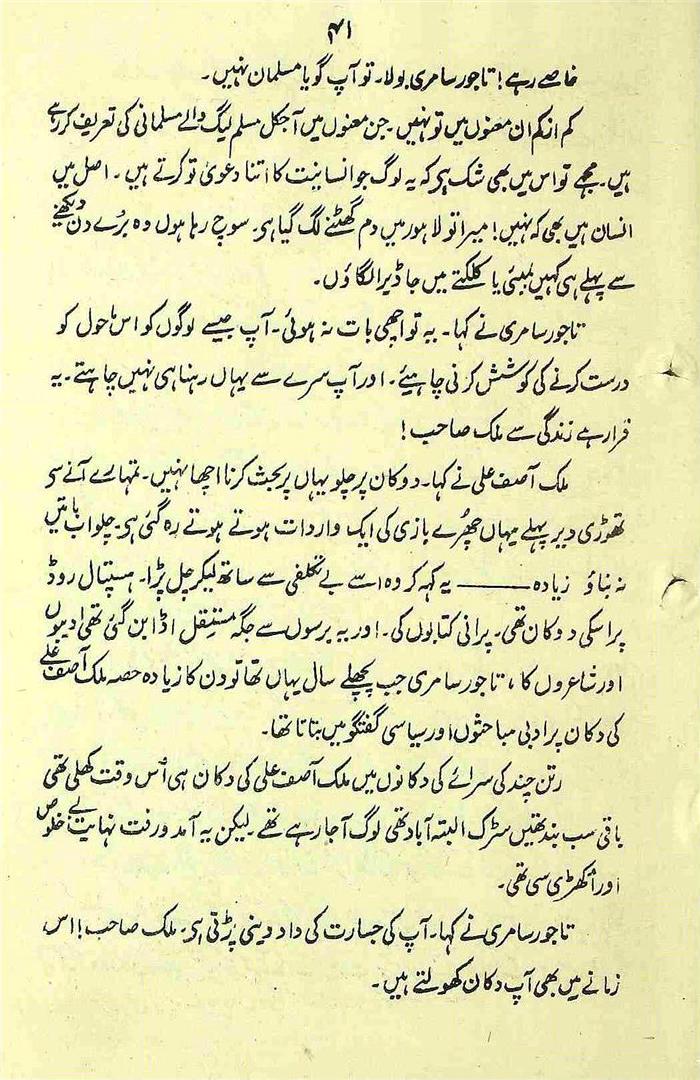 ۴۱
خاصے رہے! تاجور سامری بولا۔ تو آپ گویا مسلمان نہیں۔
کم از کم ان معنوں میں تو نہیں۔ جن معنوں میں آجکل مسلم لیگ والے مسلمانی کی تعریف کر رہے
ہیں۔ مجھے تو اس میں بھی شک ہی کہ یہ لوگ جو انسانیت کا اتنا دعویٰ تو کرتے ہیں۔ اصل میں
انسان ہیں بھی کہ نہیں! میرا تو لاہور میں دم گھٹنے لگ گیا ہی۔ سوچ رہا ہوں وہ برُے دن دیکھنے
سے پہلے ہی کہیں بمبئی یا کلکتے میں جا ڈیرا لگاؤں۔
تاجور سامری نے کہا۔ یہ تو اچھی بات نہ ہوئی۔ آپ جیسے لوگوں کو اس ماحول کو
درست کرنے کی کوشش کرنی چاہیئے۔ اور آپ سرے سے یہاں رہنا ہی نہیں چاہتے۔ یہ
فرار ہے زندگی سے ملک صاحب!
ملک آصف علی نے کہا۔ دوکان پر چلو یہاں پر بحث کرنا اچھا نہیں۔ تمہارے آنے سی
تھوڑی دیر پہلے یہاں چھُرے بازی کی ایک واردات ہوتے ہوتے رہ گئی ہی۔ چلو اب باتیں
نہ بناؤ زیادہ ——— یہ کہہ کر وہ اسے بے تکلفی سے ساتھ لیکر چل پڑا۔ ہسپتال روڈ
پر اسکی دوکان تھی۔ پرانی کتابوں کی۔ اور یہ برسوں سے جگہ مستقل اڈا بن گئی تھی ادیبوں
اور شاعروں کا، تاجور سامری جب پچھلے سال یہاں تھا تو دن کا زیادہ حصہ ملک آصف علی
کی دکان پر ادبی مباحثوں اور سیاسی گفتگو میں بتاتا تھا۔
رتن چند کی سرائے کی دکانوں میں ملک آصف علی کی دکان ہی اُس وقت کھلی تھی
باقی سب بند تھیں سڑک البتہ آباد تھی لوگ آ جا رہے تھے۔ لیکن یہ آمد و رفت نہایت بے خلوص
اور اُکھڑی سی تھی۔
تاجور سامری نے کہا۔ آپ کی جسارت کی داد دینی پڑتی ہی۔ ملک صاحب! اس
زمانے میں بھی آپ دکان کھولتے ہیں۔